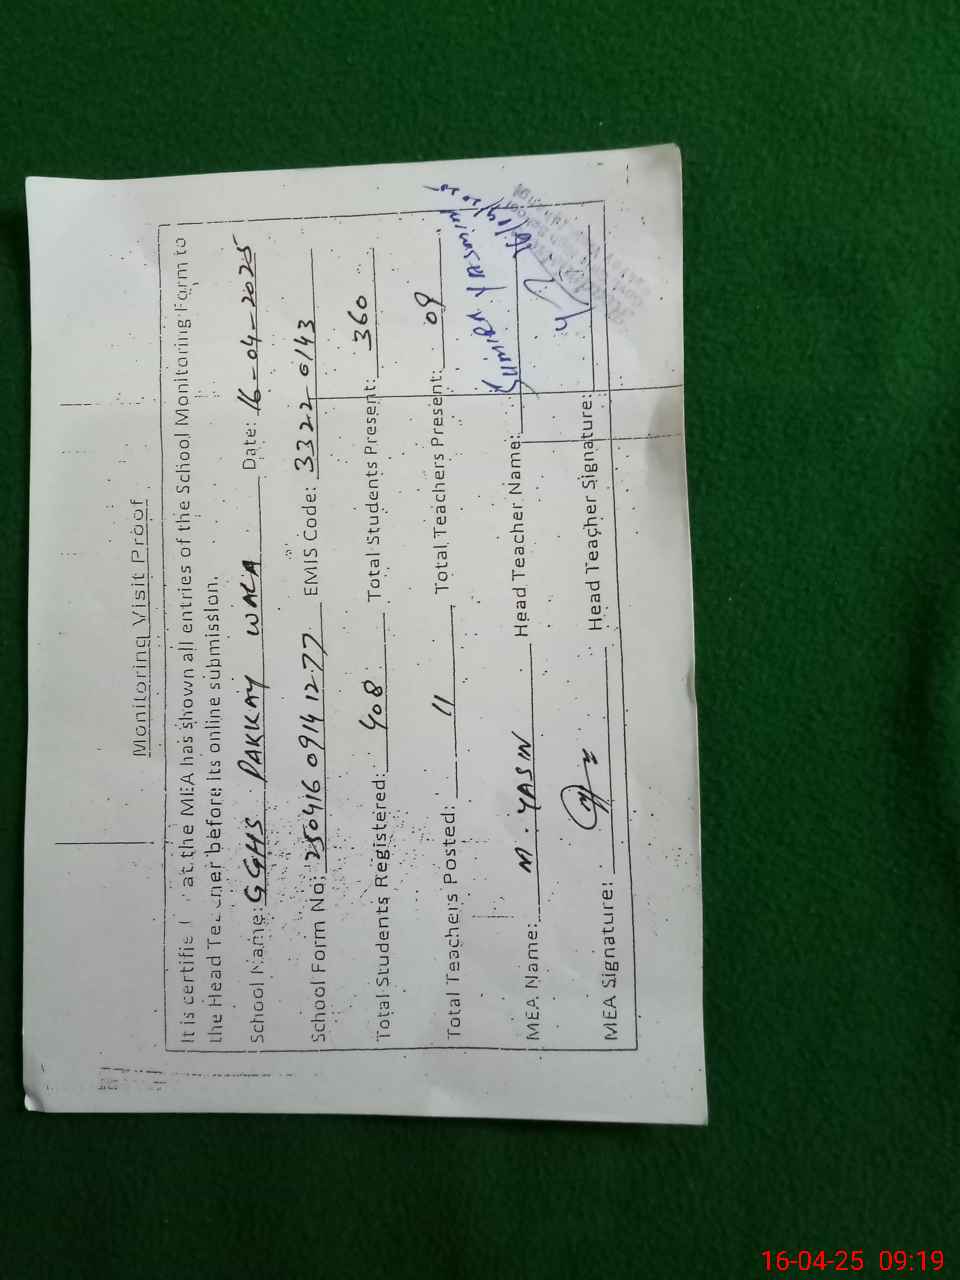 Monitoring Visit Proof
It is certifie at the MEA has shown all entries of the School Monitoring Form to
the Head Teacher before its online submission.
School Name: GGHS PAKKAY WALA Date: 16-04-2025
School Form No: 250416 0914 1277 EMIS Code: 3322-0143
Total Students Registered: 408 Total Students Present: 360
Total Teachers Posted: 11 Total Teachers Present: 09
MEA Name: M. YASIN Head Teacher Name: Sumira Yasmin
MEA Signature: Head Teacher Signature:
16-04-25 09:19